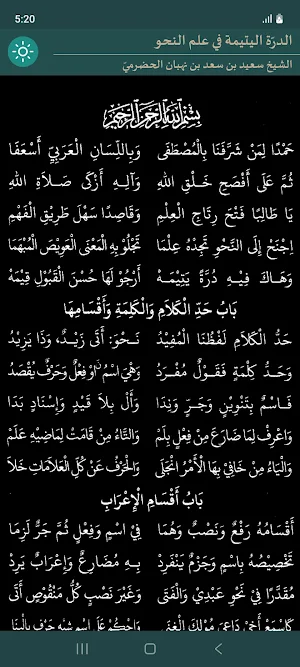 5:20
الدرّة اليتيمة في علم النحو
الشيخ سعيد بن سعد بن نبهان الحضرميّ
بِسْمِ اللهِ الرَّحْمَنِ الرَّحِيمِ
حَمْدًا لِمَنْ شَرَّفَنَا بِالْمُصْطَفَى وَبِاللِّسَانِ الْعَرَبِيِّ أَسْعَفَا
ثُمَّ عَلَى أَفْصَحِ خَلْقِ اللهِ وَآلِهِ أَزْكَى صَلَاةِ اللهِ
يَا طَالِبًا فَتْحَ رِتَاجِ الْعِلْمِ وَقَاصِدًا سَهْلَ طَرِيْقِ الْفَهْمِ
اِجْنَحْ إِلَى النَّحْوِ تَجِدْهُ عِلْمَا تَجْلُو بِهِ الْمَعْنَى الْعَوِيْصَ الْمُبْهَمَا
وَهَاكَ فِيْهِ دُرَّةً يَتِيْمَهْ أَرْجُو لَهَا حُسْنَ الْقَبُوْلِ قِيْمَهْ
بَابُ حَدِّ الْكَلَامِ وَالْكَلِمَةِ وَأَقْسَامِهَا
حَدُّ الْكَلَامِ لَفْظُنَا الْمُفِيْدُ نَحْوُ: أَتَى زَيْدٌ، وَذَا يَزِيْدُ
وَحَدُّ كِلْمَةٍ فَقَوْلٌ مُفْرَدُ وَهْيَ اسْمٌ اوْ فِعْلٌ وَحَرْفٌ يُقْصَدُ
فَاسْمٌ بِتَنْوِيْنٍ وَجَرٍّ وَنِدَا وَأَلْ بِلَا قَيْدٍ وَإِسْنَادٍ بَدَا
وَاعْرِفْ لِمَا ضَارَعَ مِنْ فِعْلٍ بِلَمْ وَالتَّاءُ مِنْ قَامَتْ لِمَاضِيْهِ عَلَمْ
وَالْيَاءُ مِنْ خَافِيْ بِهَا الْأَمْرُ انْجَلَى وَالْحَرْفُ عَنْ كُلِّ الْعَلَامَاتِ خَلَا
بَابُ أَقْسَامِ الْإِعْرَابِ
أَقْسَامُهُ رَفْعٌ وَنَصْبٌ وَهُمَا فِي اسْمٍ وَفِعْلٍ ثُمَّ جَرٌّ لَزِمَا
تَخْصِيْصُهُ بِاسْمٍ وَجَزْمٌ يَنْفَرِدْ بِهِ مُضَارِعٌ وَإِعْرَابٌ يَرِدْ
مُقَدَّرًا فِي نَحْوِ عَبْدِيْ وَالْفَتَى وَغَيْرَ نَصْبٍ كُلُّ مَنْقُوْصٍ أَتَى